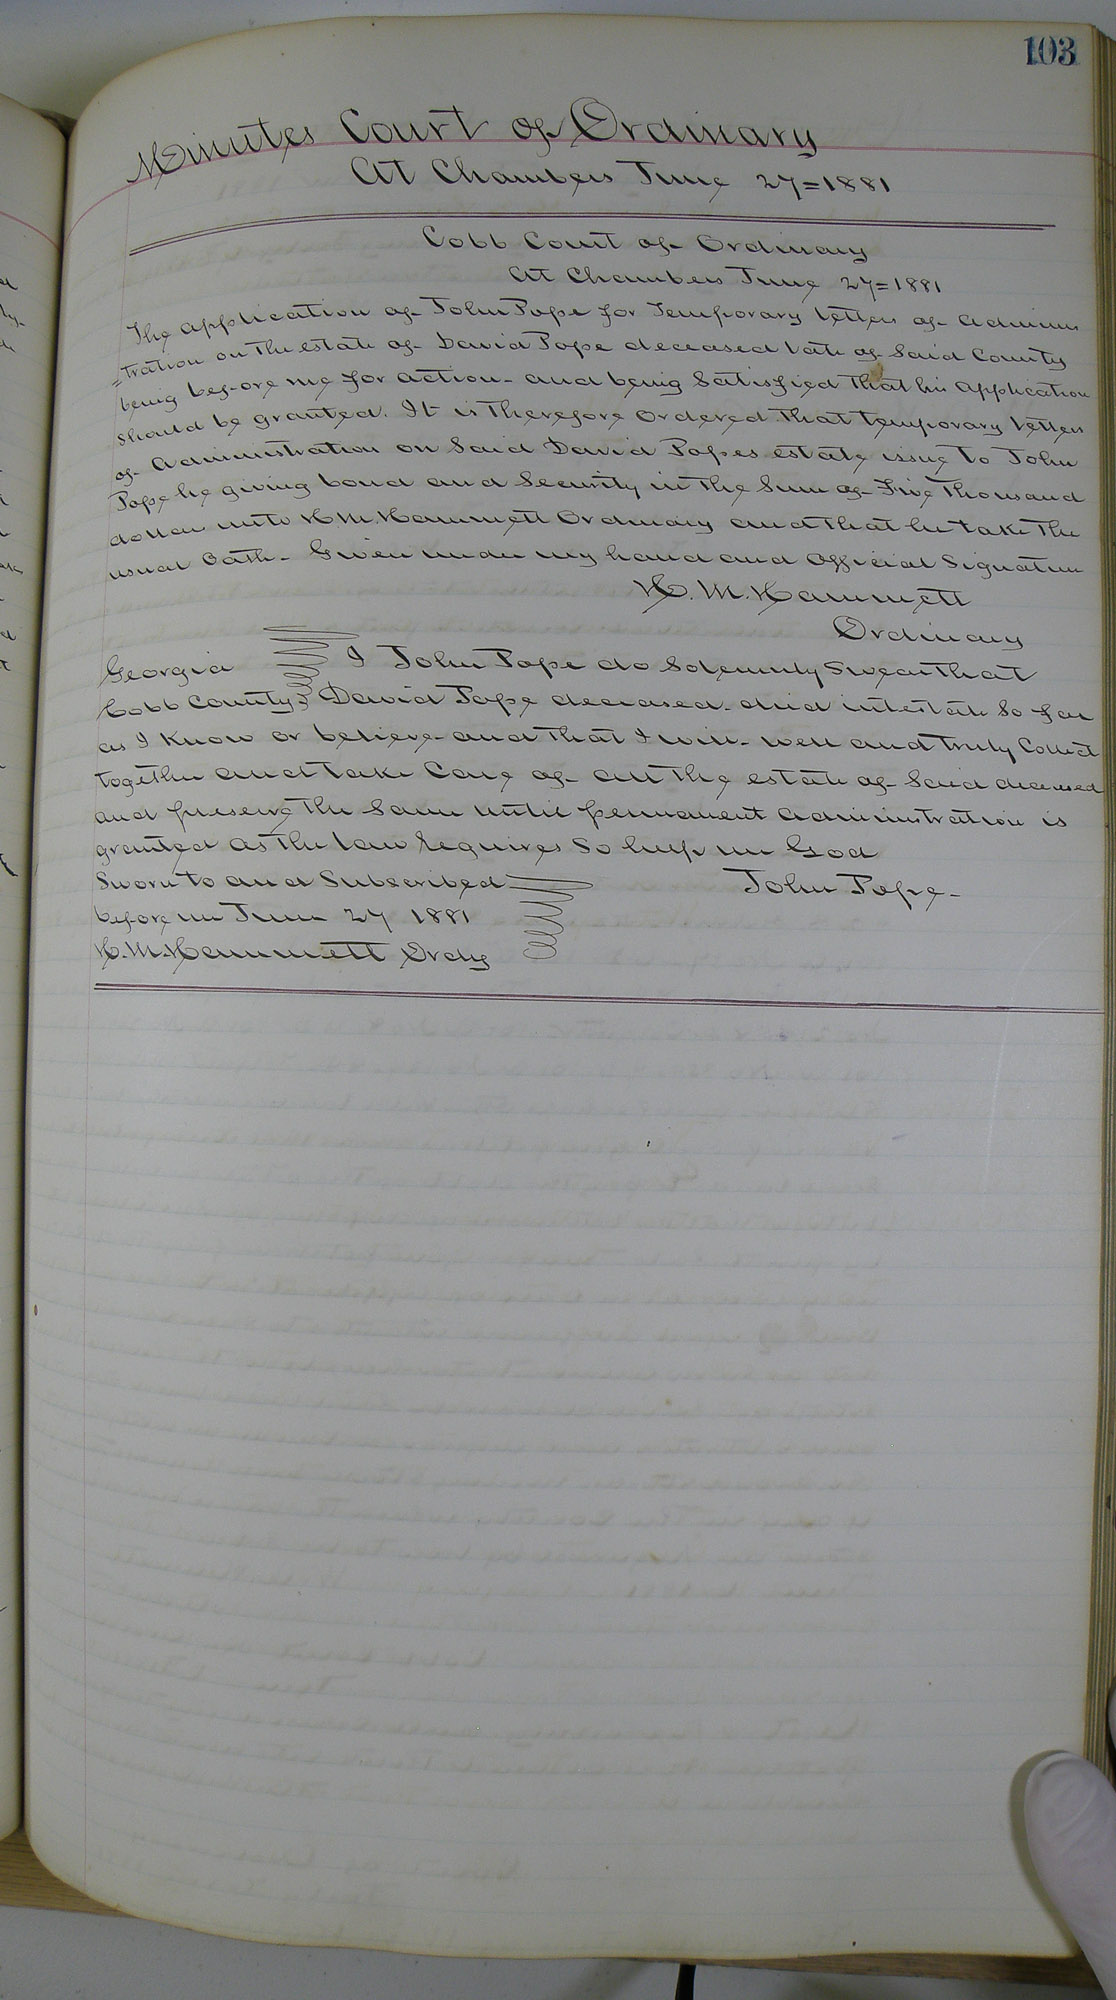 103
Minutes Court of Ordinary
At Chambers June 27=1881
Cobb Court of Ordinary
At Chambers June 27=1881
The application of John Pope for Temporary Letters of Adminis
=tration on the estate of David Pope deceased late of Said County
being before me for action - and being Satisfied that his application
should be granted. It is Therefore Ordered that temporary Letters
of Administration on Said David Popes estate issue to John
Pope he giving bond and Security in the Sum of Five Thousand
dollars unto H.M. Hammett Ordinary and that he take the
usual Oath - Given under my hand and Official Signature
H. M. Hammett
Ordinary
Georgia I John Pope do Solemnly Swear that
Cobb County David Pope deceased - died intestate So far
as I know or believe - and that I will - well and truly Collect
together and take Care of - all the estate of Said deceased
and preserve the Same until permanent Administration is
granted as the law requires So help me God
Sworn to and Subscribed John Pope -
before me June 27 1881
H.M. Hammett Ordy